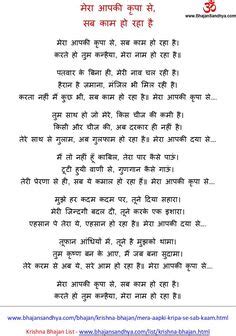 www.bhajansandhya.com
मेरा आपकी कृपा से,
सब काम हो रहा है
मेरा आपकी कृपा से, सब काम हो रहा है।
करते हो तुम कन्हैया, मेरा नाम हो रहा है॥
पतवार के बिना ही, मेरी नाव चल रही है।
हैरान है ज़माना, मंजिल भी मिल रही है।
करता नहीं मैं कुछ भी, सब काम हो रहा है॥ मेरा आपकी कृपा से...
तुम साथ हो जो मेरे, किस चीज की कमी है।
किसी और चीज की, अब दरकार ही नहीं है।
तेरे साथ से गुलाम, अब गुलफाम हो रहा है॥ मेरा आपकी दया से...
मैं तो नहीं हूँ काबिल, तेरा पार कैसे पाऊं।
टूटी हुयी वाणी से, गुणगान कैसे गाऊं।
तेरी प्रेरणा से ही, सब ये कमाल हो रहा हैं॥ मेरा आपकी कृपा से...
मुझे हर कदम कदम पर, तूने दिया सहारा।
मेरी ज़िन्दगी बदल दी, तूने करके एक इशारा।
एहसान पे तेरा ये, एहसान हो रहा है। मेरा आपकी दया से...
तूफान आंधियों में, तूने है मुझको थामा।
तुम कृष्ण बन के आए, मैं जब बना सुदामा।
तेरे करम से अब ये, सरे आम हो रहा है॥ मेरा आपकी दया से...
मेरा आपकी कृपा से, सब काम हो रहा है।
करते हो तुम कन्हैया, मेरा नाम हो रहा है॥
www.bhajansandhya.com/bhajan/krishna-bhajan/mera-aapki-kripa-se-sab-kaam.html
Krishna Bhajan List - www.bhajansandhya.com/list/krishna-bhajan.html